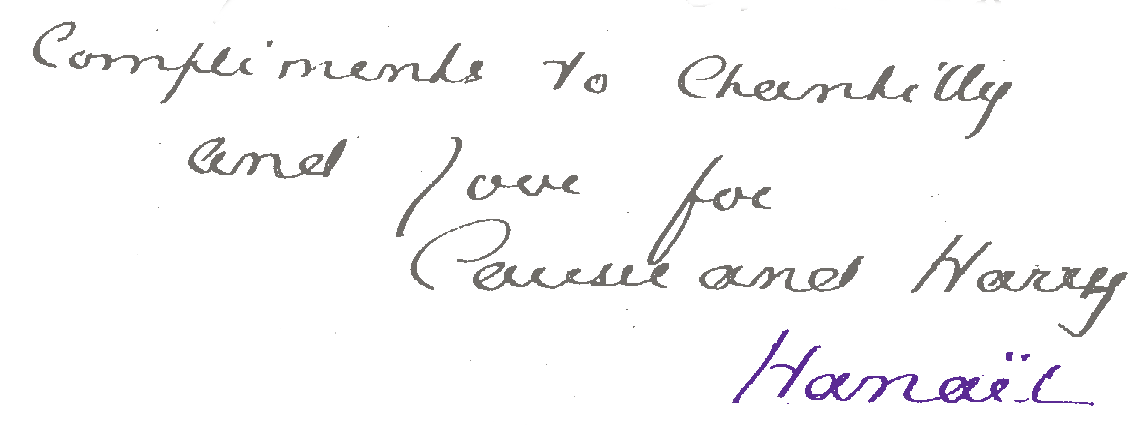 Compliments to Chantilly
and love for
and Harry
Hanaïl